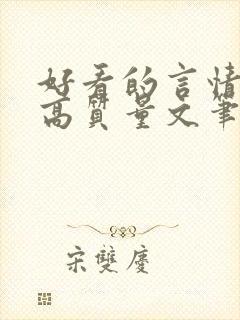 好看的言情
高质量文笔
宋雙慶